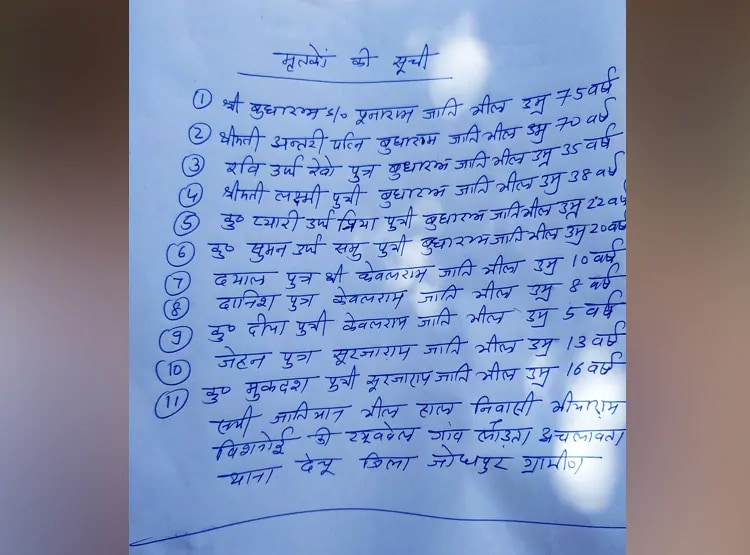 मृतकों की सूची
① श्री बुधाराम s/o पूनाराम जाति भील उम्र 75 वर्ष
② श्रीमती अन्तरी पत्नि बुधाराम जाति भील उम्र 70 वर्ष
③ रवि उर्फ रेवो पुत्र बुधाराम जाति भील उम्र 35 वर्ष
④ श्रीमती लक्ष्मी पुत्री बुधाराम जाति भील उम्र 38 वर्ष
⑤ कु० प्यारी उर्फ प्रिया पुत्री बुधाराम जाति भील उम्र 22 वर्ष
⑥ कु० सुमन उर्फ समु पुत्री बुधाराम जाति भील उम्र 20 वर्ष
⑦ दयाल पुत्र श्री केवलराम जाति भील उम्र 10 वर्ष
⑧ दानिश पुत्र केवलराम जाति भील उम्र 8 वर्ष
⑨ कु० दीया पुत्री केवलराम जाति भील उम्र 5 वर्ष
⑩ जेहन पुत्र सूरजाराम जाति भील उम्र 13 वर्ष
⑪ कु० मुकदश पुत्री सूरजाराम जाति भील उम्र 16 वर्ष
सभी जातियान भील हाल निवासी भीयाराम
विशनोई की ट्यूबवेल गांव लोड़ता अचलावता
थाना देचू जिला जोधपुर ग्रामीण